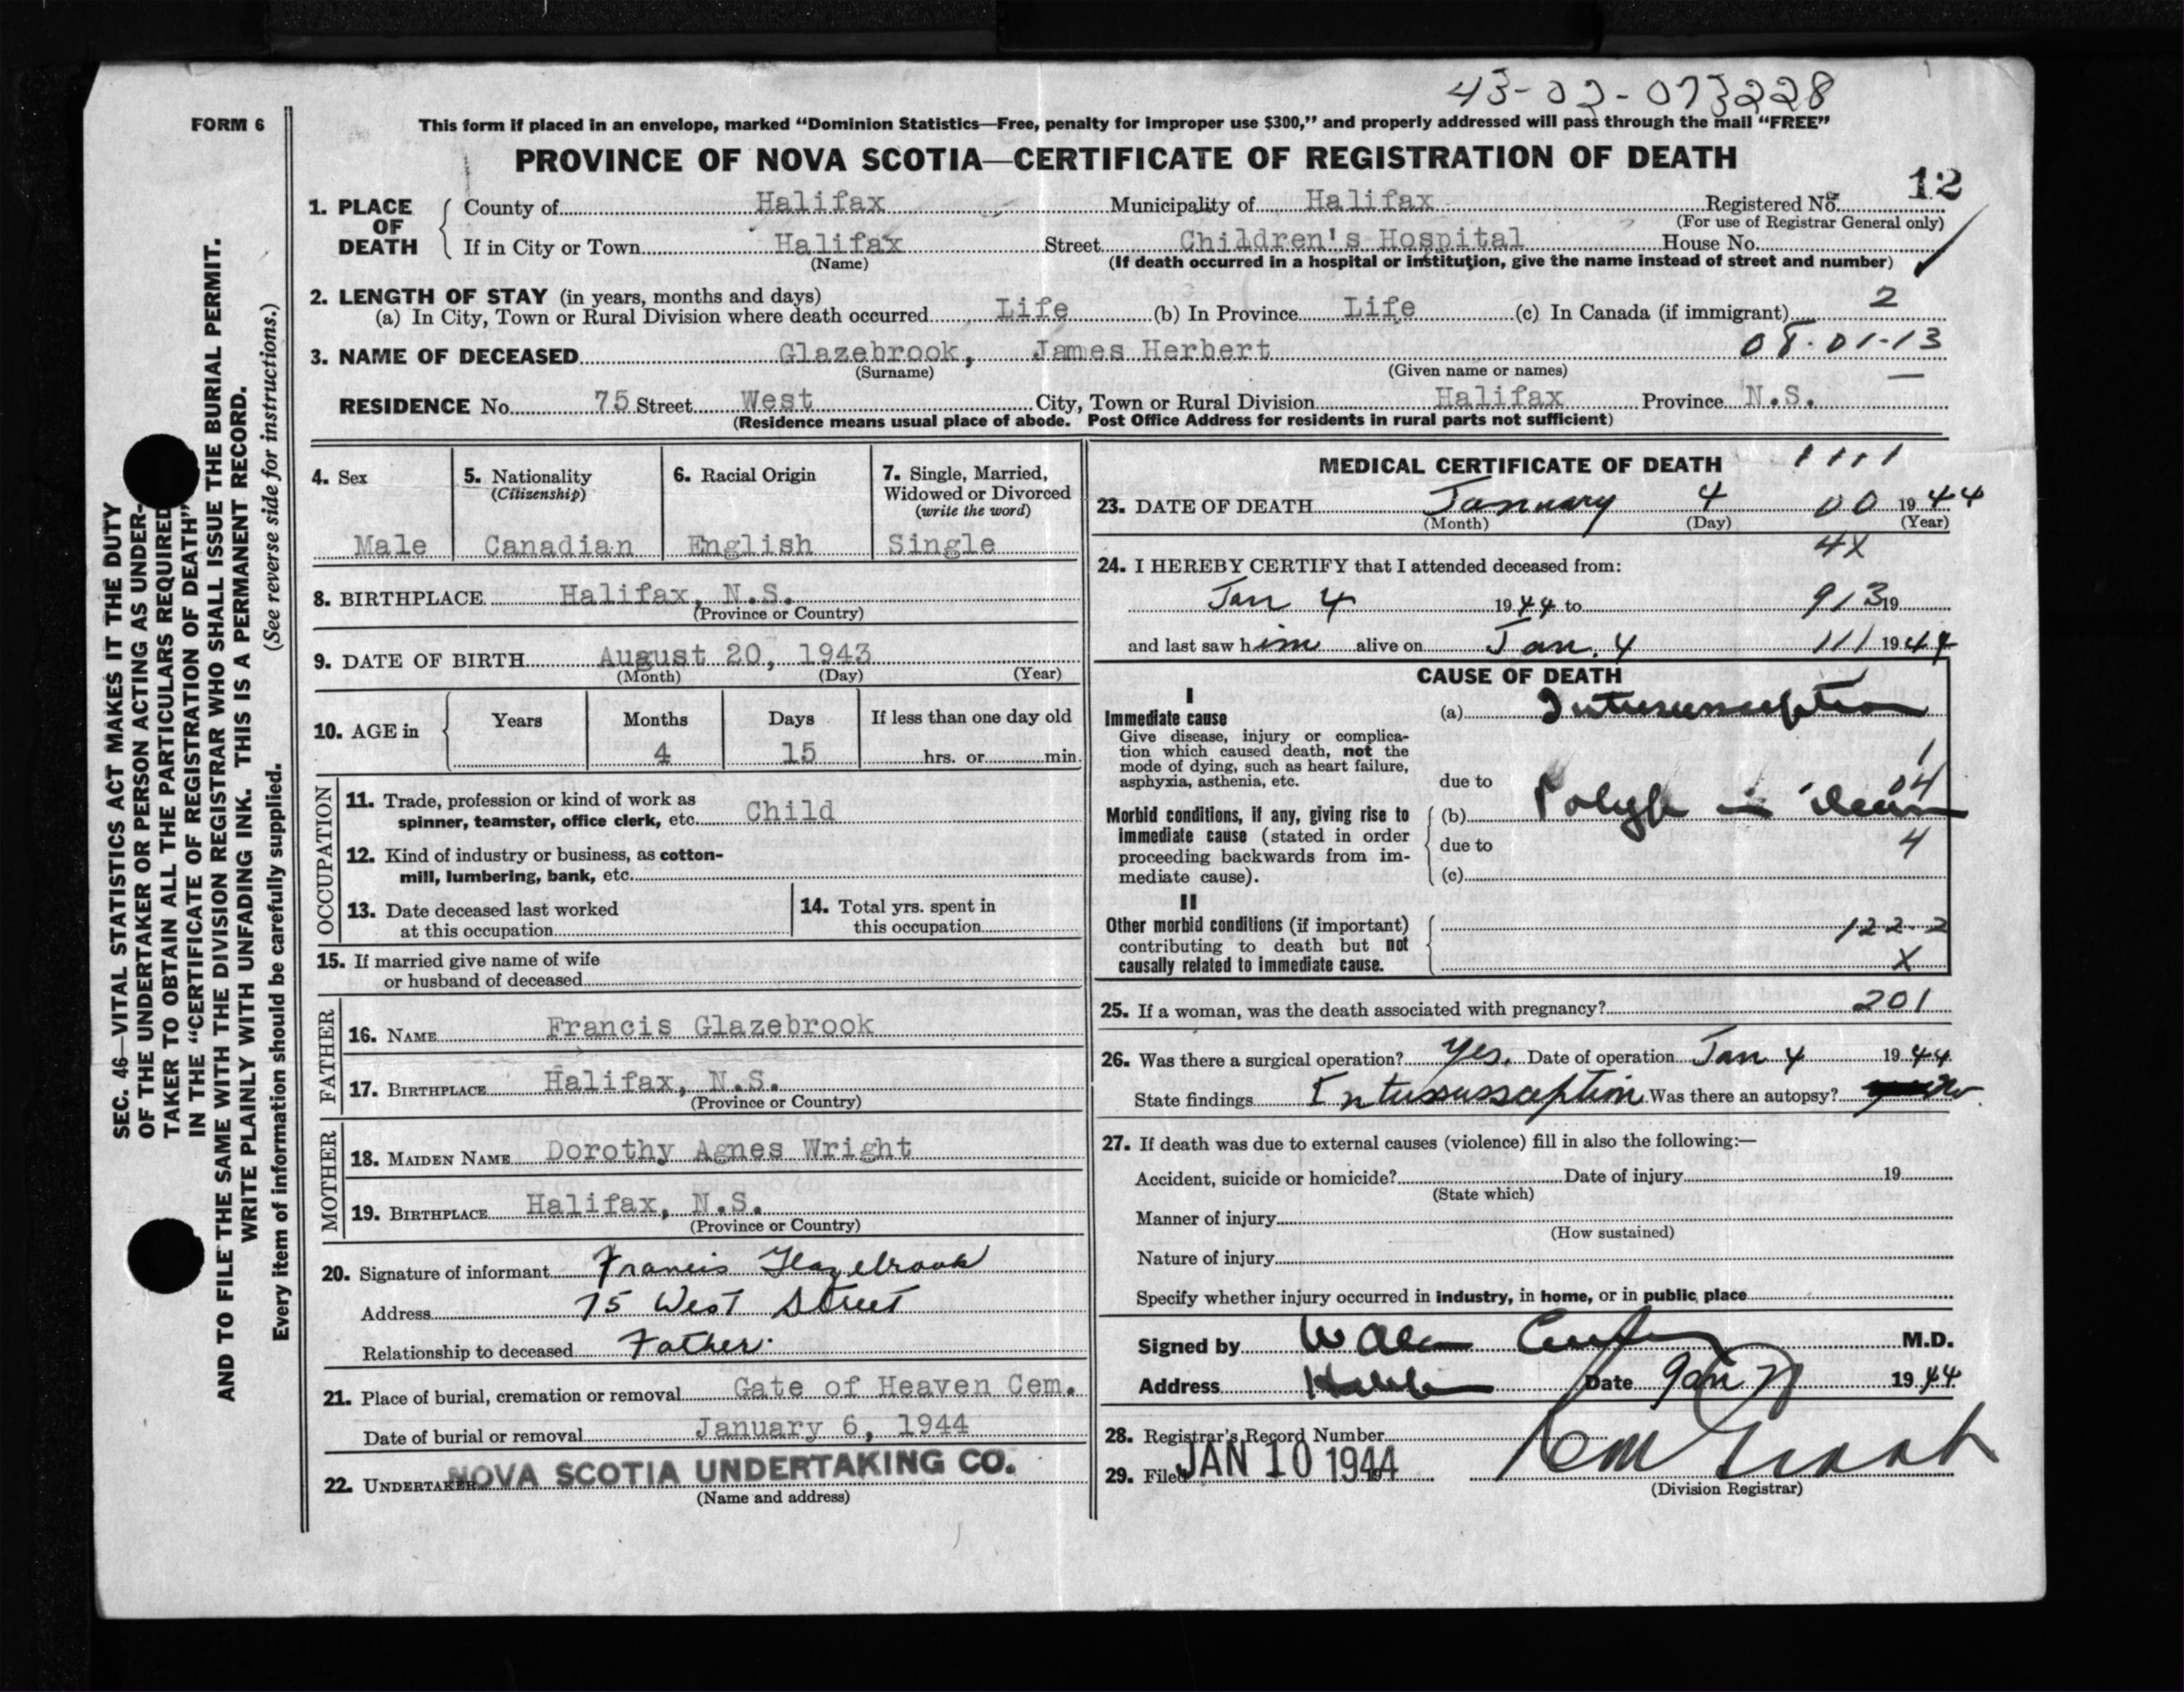 43-02-073228
FORM 6
This form if placed in an envelope, marked "Dominion Statistics—Free, penalty for improper use $300," and properly addressed will pass through the mail "FREE"
PROVINCE OF NOVA SCOTIA—CERTIFICATE OF REGISTRATION OF DEATH
12
SEC. 46—VITAL STATISTICS ACT MAKES IT THE DUTY
OF THE UNDERTAKER OR PERSON ACTING AS UNDER-
TAKER TO OBTAIN ALL THE PARTICULARS REQUIRED
IN THE "CERTIFICATE OF REGISTRATION OF DEATH"
AND TO FILE THE SAME WITH THE DIVISION REGISTRAR WHO SHALL ISSUE THE BURIAL PERMIT.
WRITE PLAINLY WITH UNFADING INK. THIS IS A PERMANENT RECORD.
Every item of information should be carefully supplied. (See reverse side for instructions.)
1. PLACE OF DEATH
County of Halifax Municipality of Halifax Registered No.
(For use of Registrar General only)
If in City or Town Halifax Street Children's Hospital House No.
(Name) (If death occurred in a hospital or institution, give the name instead of street and number)
2. LENGTH OF STAY (in years, months and days)
(a) In City, Town or Rural Division where death occurred Life (b) In Province Life (c) In Canada (if immigrant) 2
3. NAME OF DECEASED Glazebrook, James Herbert 08-01-13
(Surname) (Given name or names)
RESIDENCE No. 75 Street West City, Town or Rural Division Halifax Province N.S.
(Residence means usual place of abode. Post Office Address for residents in rural parts not sufficient)
4. Sex
Male
5. Nationality
(Citizenship)
Canadian
6. Racial Origin
English
7. Single, Married,
Widowed or Divorced
(write the word)
Single
8. BIRTHPLACE Halifax, N.S.
(Province or Country)
9. DATE OF BIRTH August 20, 1943
(Month) (Day) (Year)
10. AGE in Years Months Days If less than one day old
4 15 hrs. or min.
OCCUPATION
11. Trade, profession or kind of work as
spinner, teamster, office clerk, etc. Child
12. Kind of industry or business, as cotton-
mill, lumbering, bank, etc.
13. Date deceased last worked
at this occupation
14. Total yrs. spent in
this occupation
15. If married give name of wife
or husband of deceased
FATHER
16. NAME Francis Glazebrook
17. BIRTHPLACE Halifax, N.S.
(Province or Country)
MOTHER
18. MAIDEN NAME Dorothy Agnes Wright
19. BIRTHPLACE Halifax, N.S.
(Province or Country)
20. Signature of informant Francis Glazebrook
Address 75 West Street
Relationship to deceased Father.
21. Place of burial, cremation or removal Gate of Heaven Cem.
Date of burial or removal January 6, 1944
22. UNDERTAKER NOVA SCOTIA UNDERTAKING CO.
(Name and address)
MEDICAL CERTIFICATE OF DEATH 1111
23. DATE OF DEATH January 4 00 1944
(Month) (Day) (Year)
4X
24. I HEREBY CERTIFY that I attended deceased from:
Jan 4 1944 to 913 19
and last saw him alive on Jan. 4 111 1944
CAUSE OF DEATH
I
Immediate cause
Give disease, injury or complica-
tion which caused death, not the
mode of dying, such as heart failure,
asphyxia, asthenia, etc.
(a) Intussusception
1
due to
04
Morbid conditions, if any, giving rise to
immediate cause (stated in order
proceeding backwards from im-
mediate cause).
(b) Polyp in ileum
due to
4
(c)
II
Other morbid conditions (if important)
contributing to death but not
causally related to immediate cause.
122-2
X
25. If a woman, was the death associated with pregnancy? 201
26. Was there a surgical operation? Yes. Date of operation Jan 4 1944
State findings Intussussception Was there an autopsy? No.
27. If death was due to external causes (violence) fill in also the following:—
Accident, suicide or homicide? Date of injury 19
(State which)
Manner of injury
(How sustained)
Nature of injury
Specify whether injury occurred in industry, in home, or in public place
Signed by M.D.
Address Date Jan 1944
28. Registrar's Record Number
29. Filed JAN 10 1944
(Division Registrar)